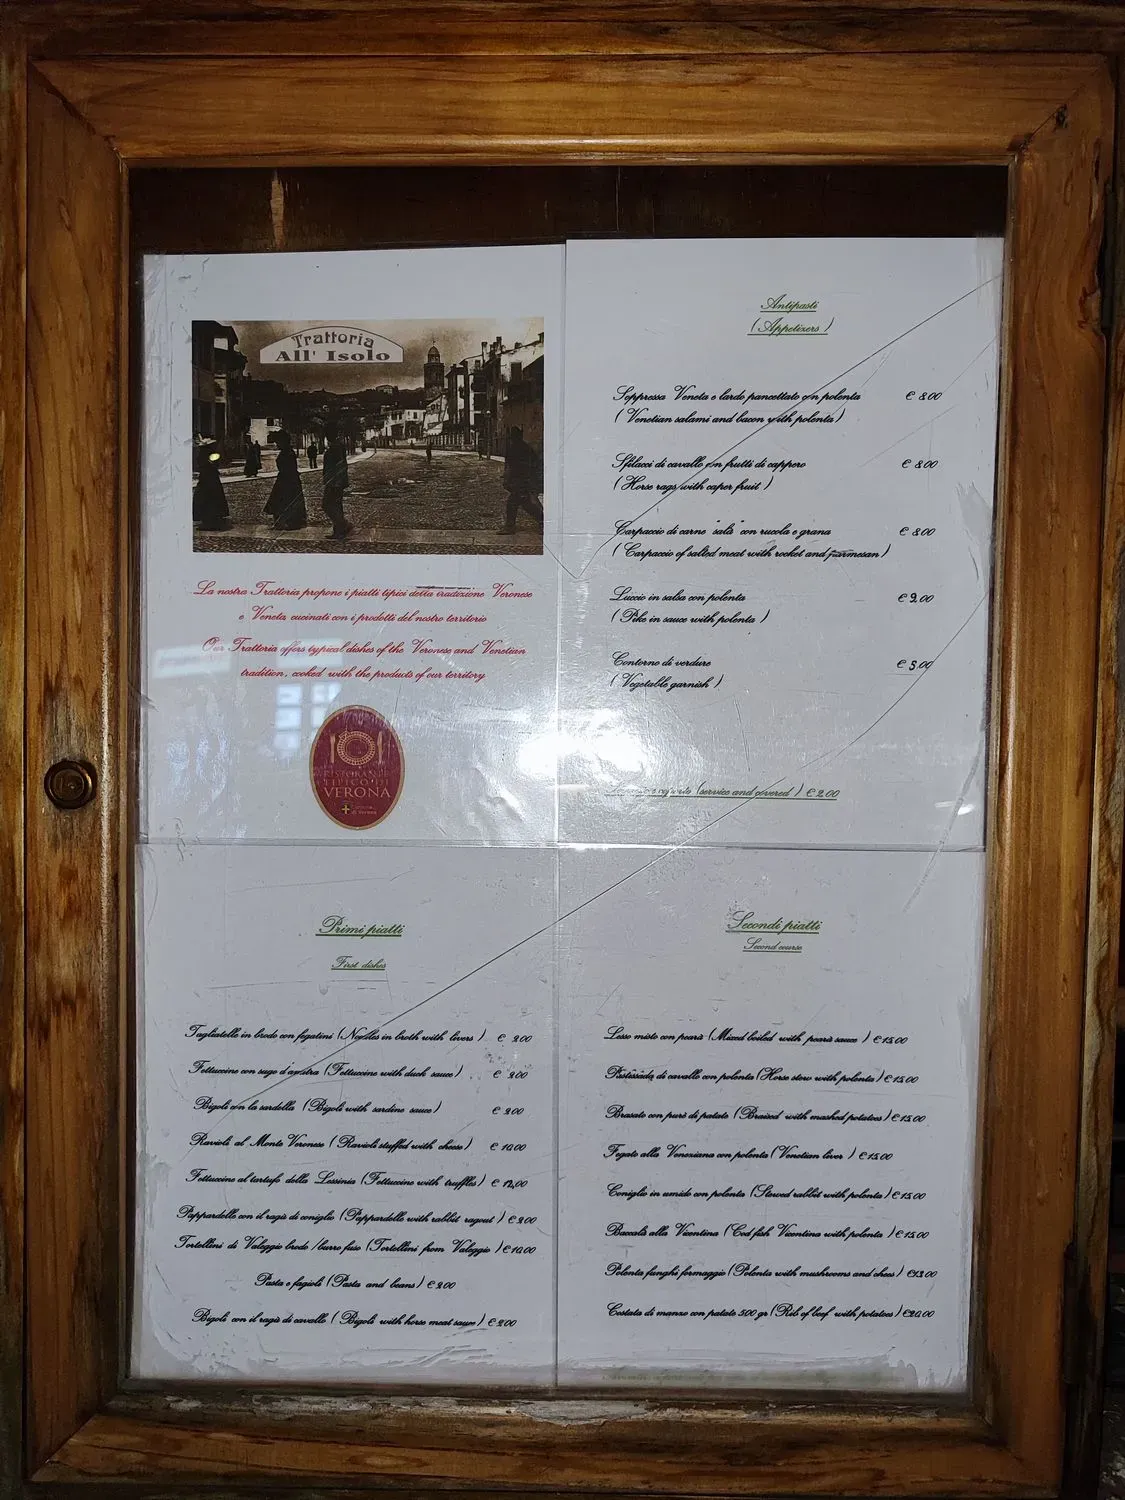 Trattoria
All' Isolo
La nostra Trattoria propone i piatti tipici della tradizione Veronese
e Veneta, cucinati con i prodotti del nostro territorio
Our Trattoria offers typical dishes of the Veronese and Venetian
tradition, cooked with the products of our territory
RISTORANTE
TIPICO DI
VERONA
Comune
di Verona
Antipasti
( Appetizers )
Soppressa Veneta e lardo pancettato con polenta € 8,00
( Venetian salami and bacon with polenta )
Sfilacci di cavallo con frutti di cappero € 8,00
( Horse rags with caper fruit )
Carpaccio di carne "salà" con rucola e grana € 8,00
( Carpaccio of salted meat with rocket and parmesan )
Luccio in salsa con polenta € 9,00
( Pike in sauce with polenta )
Contorno di verdure € 5,00
( Vegetable garnish )
coperto (service and covered ) € 2,00
Primi piatti
First dishes
Tagliatelle in brodo con fegatini (Noodles in broth with livers ) € 9,00
Fettuccine con sugo d'anatra (Fettuccine with duck sauce ) € 9,00
Bigoli con la sardella ( Bigoli with sardine sauce ) € 9,00
Ravioli al Monte Veronese ( Ravioli stuffed with cheese ) € 10,00
Fettuccine al tartufo della Lessinia (Fettuccine with truffles) € 12,00
Pappardelle con il ragù di coniglio (Pappardelle with rabbit ragout ) € 9,00
Tortellini di Valeggio brodo /burro fuso (Tortellini from Valeggio ) € 10,00
Pasta e fagioli (Pasta and beans) € 9,00
Bigoli con il ragù di cavallo ( Bigoli with horse meat sauce) € 9,00
Secondi piatti
Second course
Lesso misto con pearà (Mixed boiled with pearà sauce ) € 15,00
Pastissada di cavallo con polenta (Horse stew with polenta) € 15,00
Brasato con purè di patate (Braised with mashed potatoes) € 15,00
Fegato alla Veneziana con polenta ( Venetian liver ) € 15,00
Coniglio in umido con polenta (Stewed rabbit with polenta ) € 15,00
Baccalà alla Vicentina ( Cod fish Vicentina with polenta ) € 15,00
Polenta funghi formaggio (Polenta with mushrooms and chees) € 13,00
Costata di manzo con patate 500 gr ( Rib of beef with potatoes) € 20,00